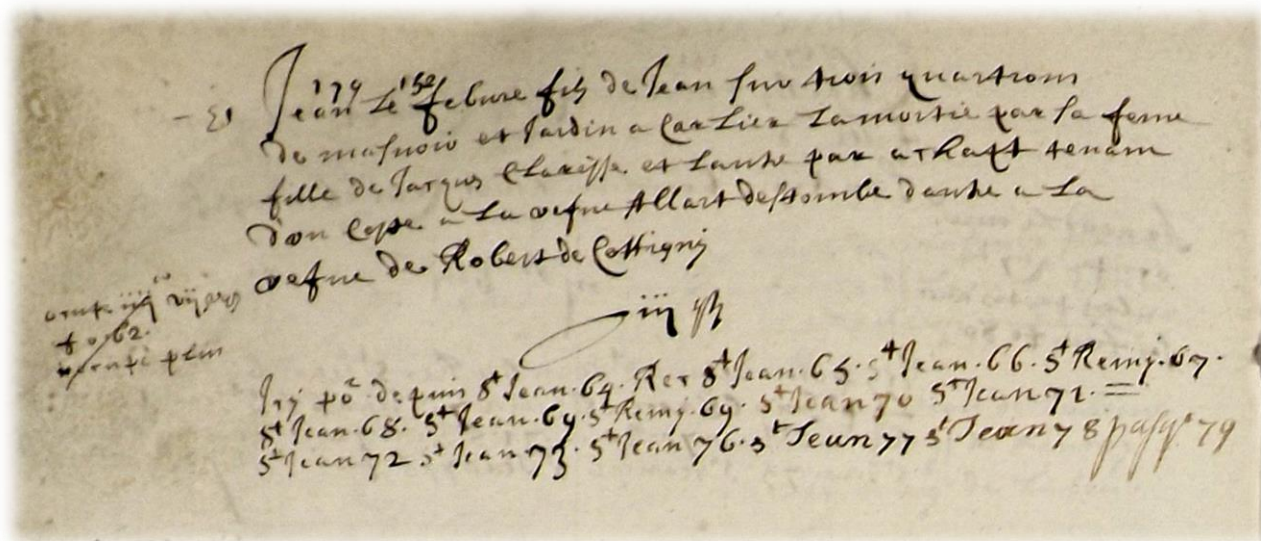 179 152
Jean Le febure fils de Jean sur trois quartrons
de masnoir et Jardin a Carlier La moitie par sa feme
fille de Jacques Clarisse et Lautre par achapt tenam
dun Coste a La vefue Allart destombe dautre a La
vefue de Robert de Cottigni
iii
fo 62.
plus
Icy depuis St Jean. 64. St Jean. 65. St Jean. 66. St Remy. 67.
St Jean. 68. St Jean. 69. St Remy. 69. St Jean 70 St Jean 71. =
St Jean 72 St Jean 73. St Jean 76. St Jean 77 St Jean 78 pasq. 79